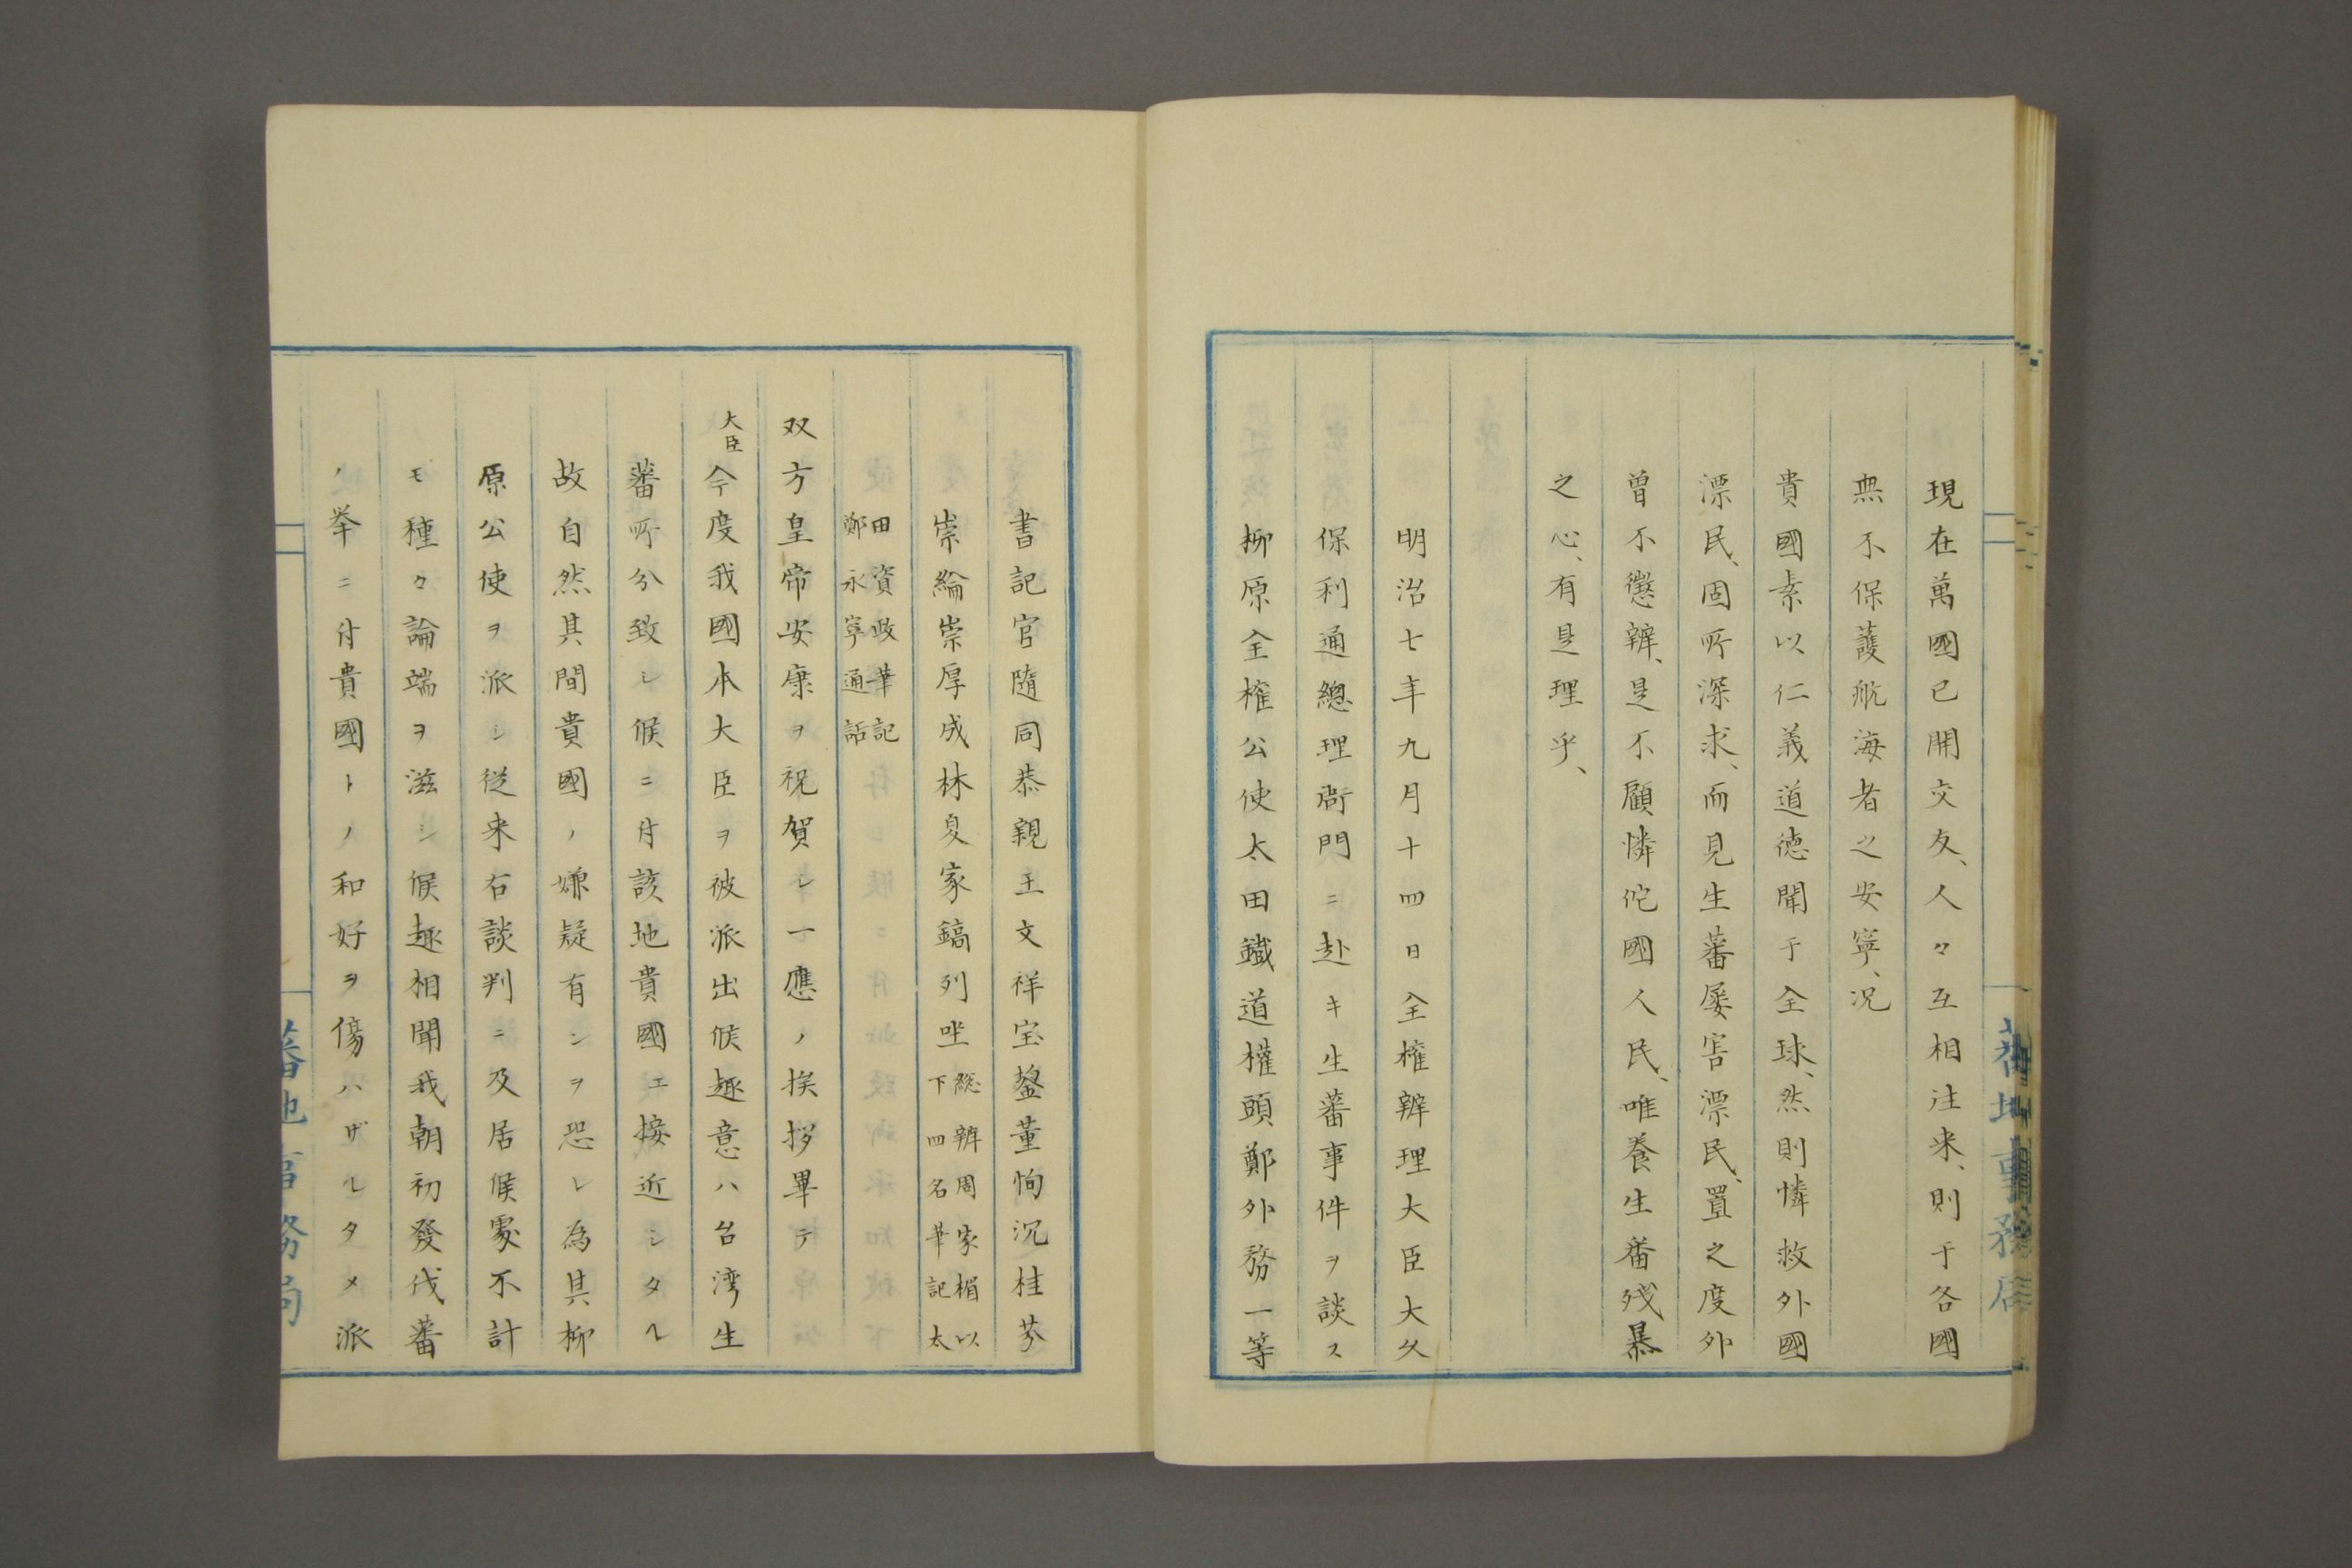 現在萬國已開交友、人々互相往来、則于各國
無不保護航海者之安寧、况
貴國素以仁義道徳聞于全球、然則憐救外國
漂民、固所深求、而見生蕃屡害漂民、置之度外
曾不懲辨、是不顧憐佗國人民、唯養生番残暴
之心、有是理乎、
明治七年九月十四日全権辨理大臣大久
保利通總理衙門ニ赴キ生蕃事件ヲ談ス
柳原全権公使太田鐵道權頭鄭外務一等
蕃地事務局
書記官隨同恭親王文祥宝鋆董恂沉桂芬
崇綸崇厚成林夏家鎬列坐総辨周家楣以下四名華記太
田資政華記鄭永寧通話
双方皇帝安康ヲ祝賀シ一應ノ挨拶畢テ
大臣今度我國本大臣ヲ被派出候趣意ハ台湾生
蕃所分致シ候ニ付該地貴國エ接近シタル
故自然其間貴國ノ嫌疑有ンヲ恐レ為其柳
原公使ヲ派シ従来右談判ニ及居候處不計
モ種々論端ヲ滋シ候趣相聞我朝初發伐蕃
ノ挙ニ付貴國トノ和好ヲ傷ハザルタメ派
蕃地事務局